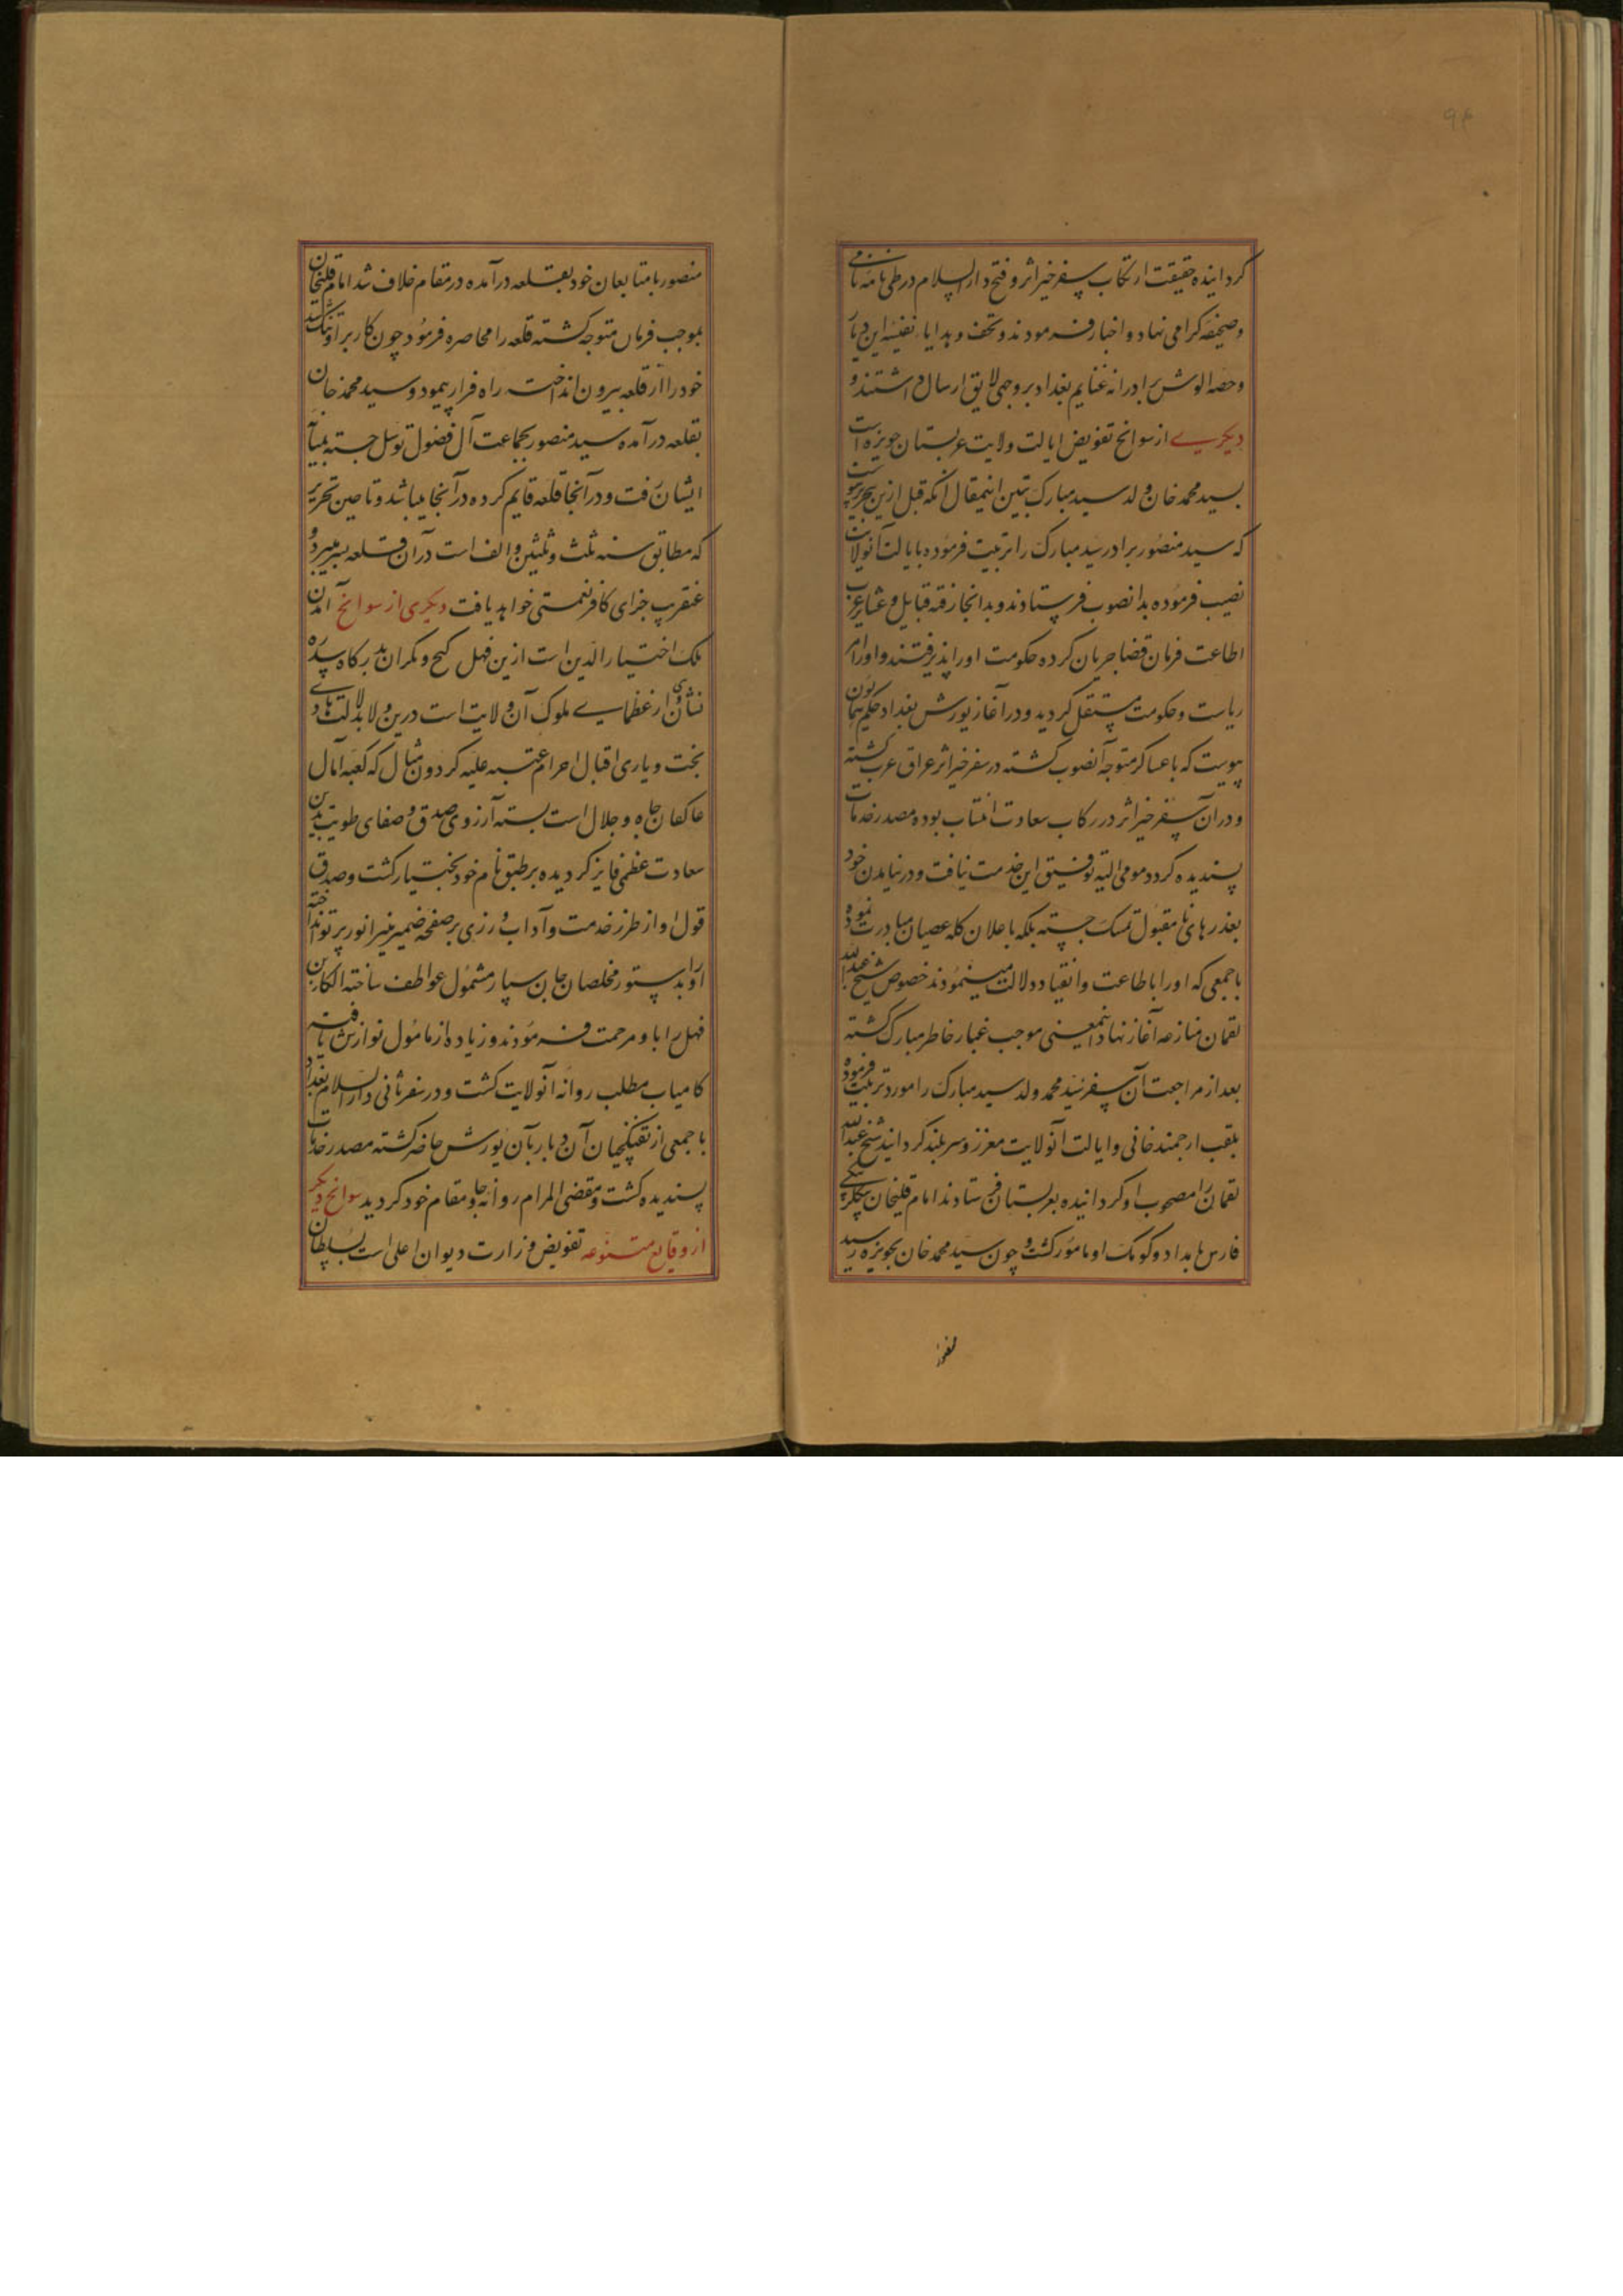 ۹۴
گردانیده حقیقت ارتکاب سفر خیر اثر و فتح دارالسلام در طی نامه نامی
و صحیفه گرامی نهاد و اخبار فرمودند و تحف و هدایا نفیسه این دیار
و حصه الوش برادرانه غنایم بغداد بر وجهی لایق ارسال داشتند و
دیگری از سوانح تفویض ایالت ولایت عربستان حویزه است
بسید محمد خان ولد سید مبارک تبیین اینمقال آنکه قبل ازین تحریر پیوست
که سید منصور برادر سید مبارک را تربیت فرموده بایالت آنولایت
نصیب فرموده بدانصوب فرستادند و بدانجا رفته قبایل و عشایر عرب
اطاعت فرمان قضا جریان کرده حکومت او را پذیرفتند و او را امر
ریاست و حکومت مستقل گردید و در آغاز یورش بغداد حکم همایون
پیوست که با عساکر متوجه آنصوب گشته در سفر خیر اثر عراق عرب گشته
و در آن سفر خیر اثر در رکاب سعادت انتساب بوده مصدر خدمات
پسندیده گردد مومی الیه توفیق این خدمت نیافت و در نیامدن خود
بعذرهای نامقبول تمسک جسته بلکه باعلان کلمه عصیان مبادرت نموده
با جمعی که او را باطاعت و انقیاد دلالت مینمودند خصوص شیخ عبدالله
لقمان منازعه آغاز نهاد اینمعنی موجب غبار خاطر مبارک گشته
بعد از مراجعت آن سفر سید محمد ولد سید مبارک را مورد تربیت فرموده
بلقب ارجمند خانی و ایالت آنولایت معزز و سربلند گردانید شیخ عبدالله
لقمان را مصحوب او گردانیده بعربستان فرستادند امام قلیخان بیگلربیگی
فارس بامداد و کومک او مامور گشت و چون سید محمد خان بحویزه رسید
منصور
منصور با متابعان خود بقلعه درآمده در مقام خلاف شد امام قلیخان
بموجب فرمان متوجه گشته قلعه را محاصره فرمود چون کار بر او تنگ شد
خود را از قلعه بیرون انداخت راه فرار پیمود و سید محمد خان
بقلعه درآمده سید منصور بجماعت آل فضول توسل جسته بمیان
ایشان رفت و در آنجا قلعه قایم کرده در آنجا میباشد و تا حین تحریر
که مطابق سنه ثلث و ثلثین و الف است در آن قلعه بسر میبرد و
عنقریب جزای کافر نعمتی خواهد یافت دیگری از سوانح آمدن
ملک اختیارالدین است ازین فهل کیج و مکران بدرگاه سدره
نشان وی از عظمای ملوک آن ولایت است درین ولا بدلالت هادی
بخت و یاری اقبال احرام عتبه علیه گردون مثال که کعبه آمال
عاکفان جاه و جلال است بسته آرزوی صدق و صفای طویت بدین
سعادت عظمی فایز گردیده بر طبق نام خود بختیار گشت و صدق
قول او از طرز خدمت و آداب ورزی بر صفحه ضمیر منیر انور پرتو انداخته
او را بدستور مخلصان جان سپار مشمول عواطف ساخته الکاء بن
فهل را باو مرحمت فرمودند و زیاده از مامول نوازش یافته
کامیاب مطلب روانه آنولایت گشت و در سفر ثانی دارالسلام بغداد
با جمعی از تفنگچیان آن دیار بآن یورش حاضر گشته مصدر خدمات
پسندیده گشت و مقضی المرام روانه جا و مقام خود گردید سوانح دیگر
از وقایع متنوعه تفویض وزارت دیوان اعلی است بسلطان